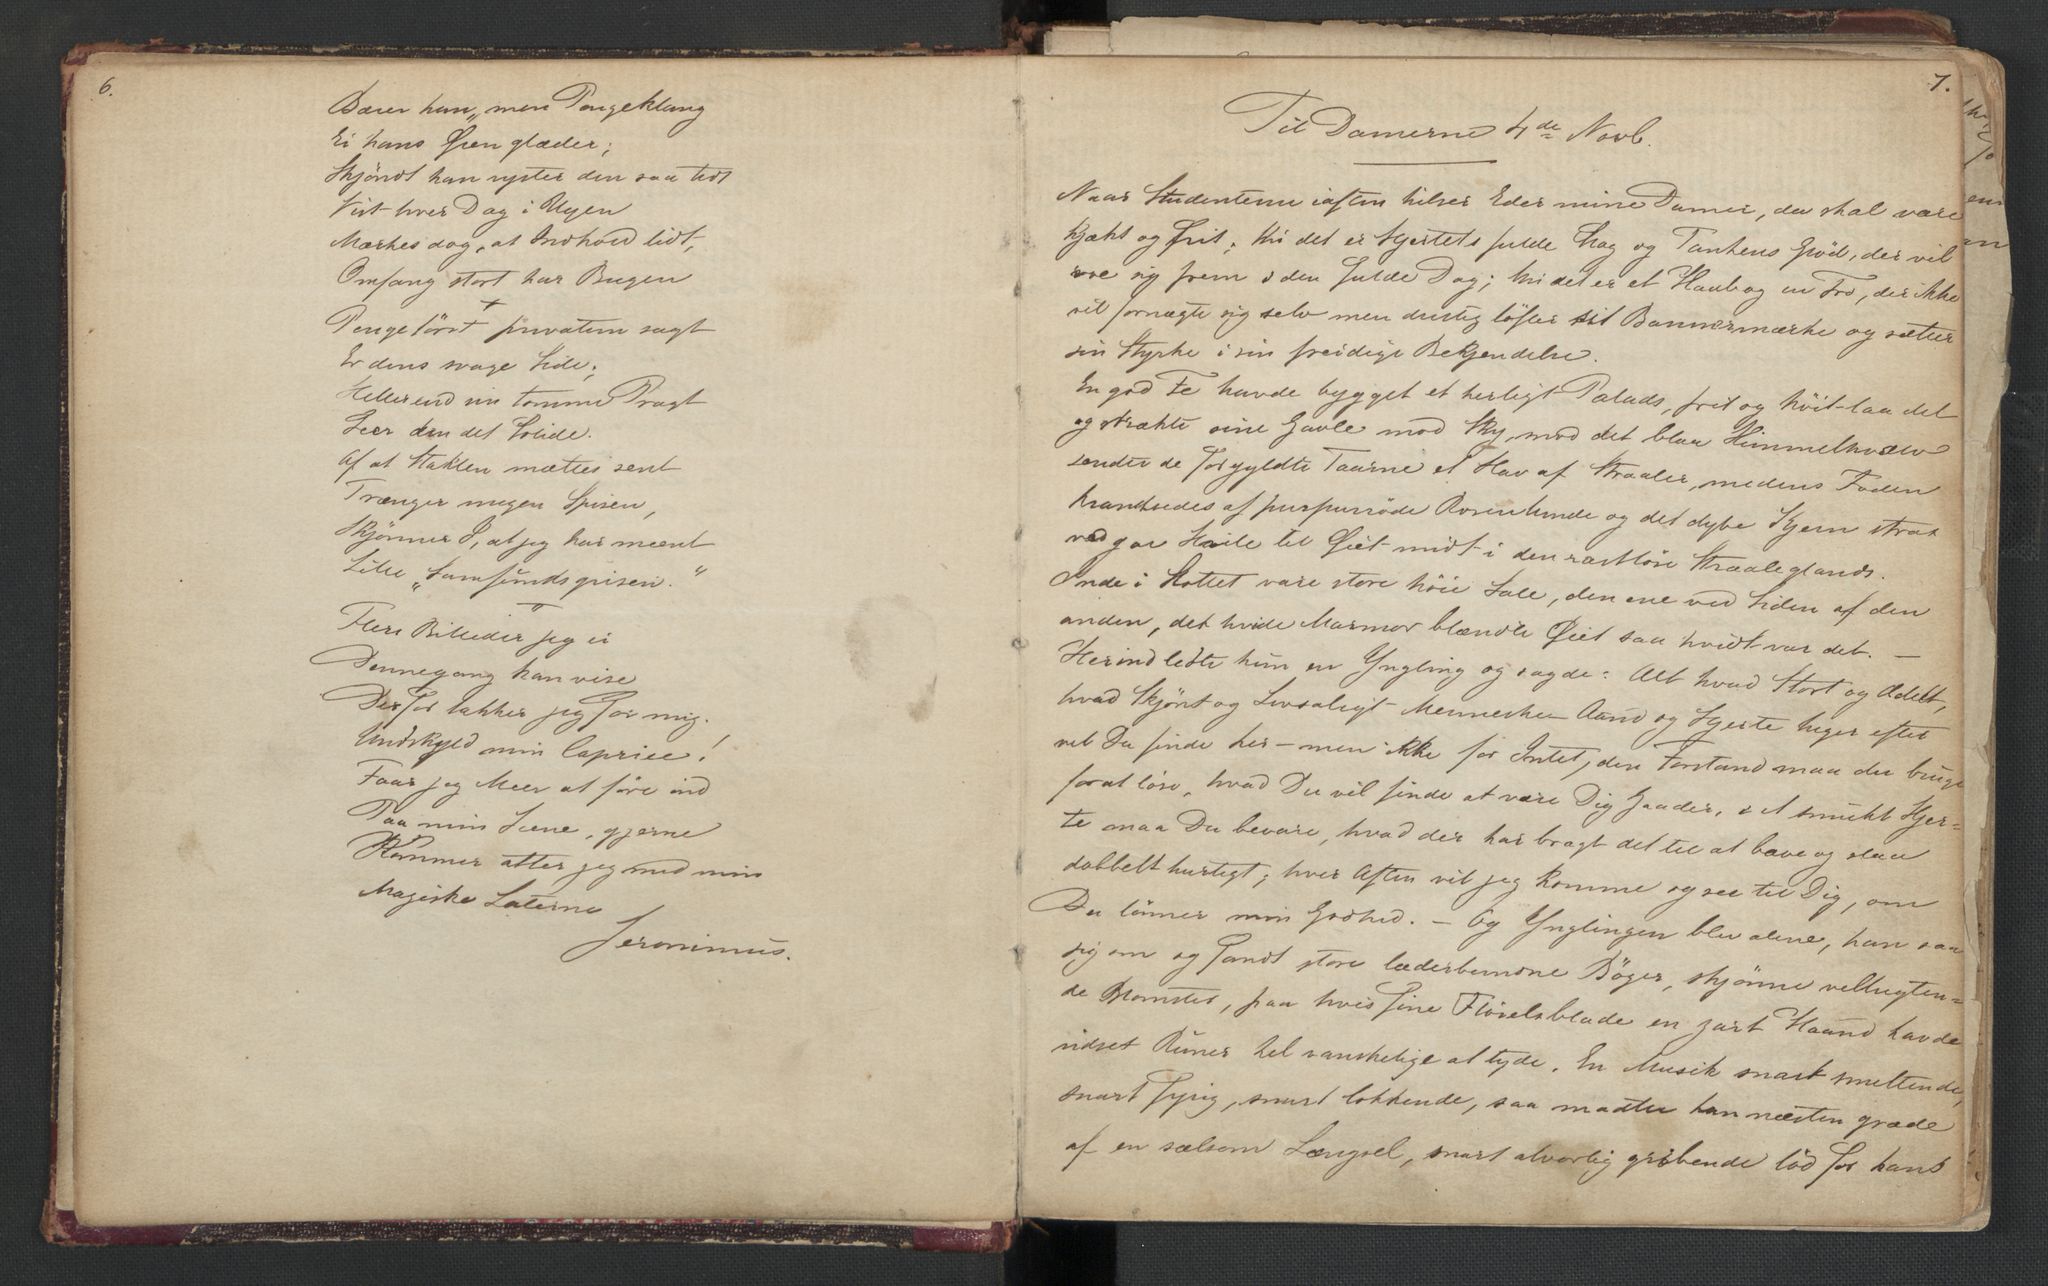 6.
Bærer han, men Pengeklang
Ei hans Øren glæder;
Skjöndt han ryster den saa tidt
Vist hver Dag i Ugen
Mærkes dog, at Indhold lidt,
Omfang stort har Bugen
Pengetörst privatim sagt
Er dens svage Side;
Heller end sin tomme Pragt
Seer den det Solide.
Af at Staklen mættes sent
Trænger megen Spisen,
Skjönner I, at jeg har meent
Lille „Samfundsgrisen.“
Flere Billeder jeg ei
Dennegang kan vise
Derfor takker jeg for mig.
Undskyld min Caprice!
Faar jeg Meer at före ind
Paa min Scene, gjerne
Kommer atter jeg med min
Magiske Laterne
Jeronimus.
7.
Til Damerne 4de Novb.
Naar Studenterne iaften hilser Eder mine Damer, da skal være
kjækt og frit, thi det er Hjertets fulde Slag og Tankens Glöd, der vil
sig frem i den fulde Dag; thi det er et Haab og en Tro, der ikke
vil fornægte sig selv men dristig löfter sit Bannermærke og sætter
sin Styrke i sin freidige Bekjendelse.
En god Fe havde bygget et herligt Palads, frit og höit laa det
og strakte sine Gavle mod Sky, mod det blaa Himmelhvælv
sendte de forgyldte Taarne et Hav af Straaler, medens Foden
krandsedes af purpurröde Rosenlunde og det dybe Tjern strax
ved gav Hvile til Öiet midt i den rastlöse Straaleglands.
Inde i Slottet vare store höie Sale, den ene ved Siden af den
anden, det hvide Marmor blændte Öiet saa hvidt var det. —
Herind ledte hun en Yngling og sagde: Alt hvad Stort og Ædelt,
hvad Skjönt og Livsaligt Menneske-Aand og Hjerte higer efter
vil Du finde her – men ikke for Intet, den Forstand maa du bruge
for at löse, hvad Du vil finde at være Dig Gaader, et smukt Hjer=
te maa Du bevare, hvad der har bragt det til at bæve og slaa
dobbelt hurtigt; hver Aften vil jeg komme og see til Dig, om
Du lönner min Godhed. — Og Ynglingen blev alene, han saa
sig om og fandt store læderbundne Böger, skjönne vellugten=
de Blomster, paa hvis fine Flöielsblade en zart Haand havde
ridset Runer hel vanskelige at tyde. En Musik snart smeltende,
snart fyrig, snart lokkende, saa maatte han næsten græde
af en sælsom Længsel, snart alvorlig gribende löd for hans